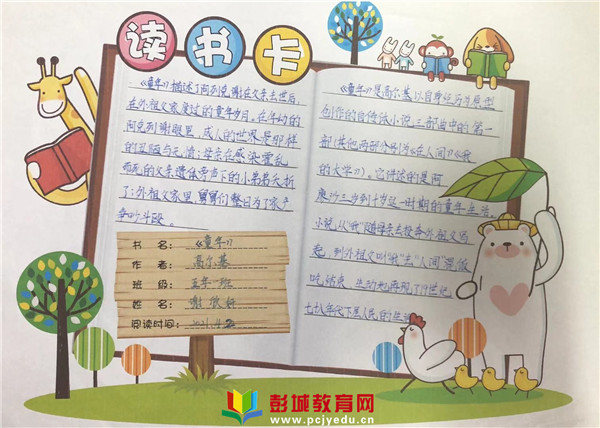 读书卡
《童年》描述了阿列克谢在父亲去世后，
在外祖父家度过的童年岁月。在年幼的
阿克列谢眼里，成人的世界是那样
的丑陋与无情：母亲在感染霍乱
而死的父亲遗体旁产下的小弟弟夭折
了；外祖父家里，舅舅们整日为了家产
争吵斗殴。
书名：《童年》
作者：高尔基
班级：五年一班
姓名：谢
阅读时间：2021.4
《童年》是高尔基以自身经历为原型
创作的自传体小说三部曲中的第一
部（其他两部分别为《在人间》《我
的大学》）。它讲述的是阿
廖沙三岁到十岁这一时期的童年生活。
小说从“我”随母亲去投奔外祖父写
起，到外祖父叫“我”去“人间”混饭
吃结束，生动地再现了19世纪
七八年代下层人民的生活
彭城教育网
www.pcjyedu.cn